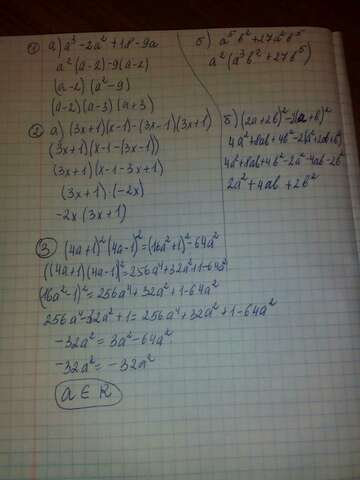 ① а) a³ - 2a² + 18 - 9a
a²(a-2) - 9(a-2)
(a-2)(a²-9)
(a-2)(a-3)(a+3)
б) a⁵b² + 27a²b⁵
a²(a³b² + 27b⁵)
② а) (3x+1)(x-1) - (3x-1)(3x+1)
(3x+1)(x-1-(3x-1))
(3x+1)(x-1-3x+1)
(3x+1)·(-2x)
-2x(3x+1)
б) (2a+2b)² - 2(a+b)²
4a²+8ab+4b²-2(a²+2ab+b²)
4a²+8ab+4b²-2a²-4ab-2b²
2a²+4ab+2b²
③ (4a+1)²(4a-1)² = (16a²+1)² - 64a²
((4a+1)(4a-1))² = 256a⁴+32a²+1-64a²
(16a²-1)² = 256a⁴+32a²+1-64a²
256a⁴-32a²+1 = 256a⁴+32a²+1-64a²
-32a² = 32a²-64a²
-32a² = -32a²
a ∈ R